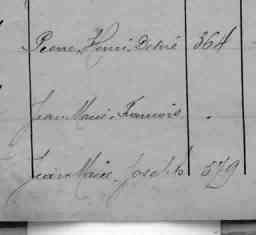 Pierre Henri Désiré 364
Jean Marie François .
Jean Marie Joseph 579